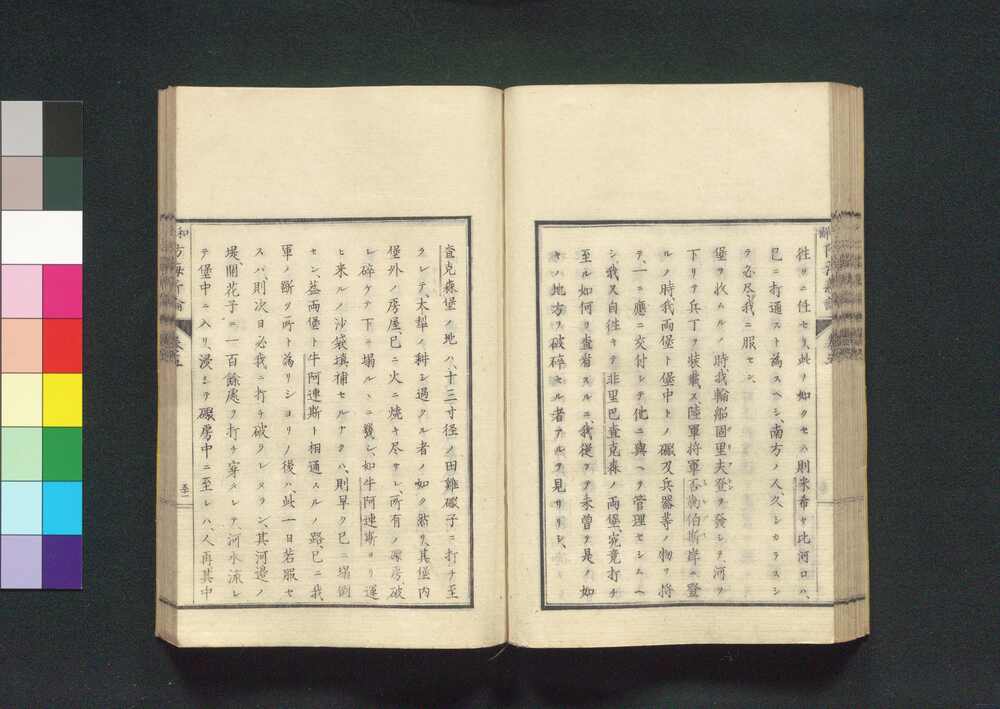 往リニ任セリ、此ヲ如クセハ則米希セ比河口ハ、
已ニ打通スト為スヘシ、南方ノ人久シカラスシ
テ必尽我ニ服セン、
堡ヲ收ムルノ時我輪船固里夫登ヲ發シテ河ヲ
下リテ兵丁ヲ裝載ス陸軍将軍否為伯斯岸ニ登
ルノ時、我両堡ト堡中トノ礟及兵器等ノ物ヲ将
テ、一ニ應ニ交付シテ他ニ與ヘテ管理セシムヘ
シ、我又自往キテ、非里巴査克森ノ両堡、究竟打チ
至ル如何ヲ査看スルニ、我從テ未曽テ是ノ如
キノ地方ヲ破碎セル者アルヲ見サリシ、
査克森堡ノ地ハ、十三寸径ノ田雞礟子ニ打チ至
ラレテ、大犁ノ耕シ過クル者ノ如ク然リ、其堡内
堡外ノ房屋、已ニ火ニ焼キ尽サレ、所有ノ礟房、破
レ碎ケテ下ニ塌ルヽニ襲シ、如牛阿連斯ヨリ運
ヒ来ルノ沙袋填補セルナクハ、則早ク已ニ塌倒
セン、茲両堡ト牛阿連斯ト相通スルノ路、已ニ我
軍ノ断ツ所ト為リシヨリノ後ハ、此一日若服セ
スハ、則次日必我ニ打チ破ラレタラン、其河邉ノ
堤、開花子ニ一百餘處ヲ打チ穿タレテ、河水流レ
テ堡中ニ入リ、浸シテ礟房中ニ至レハ、人再其中
巻五